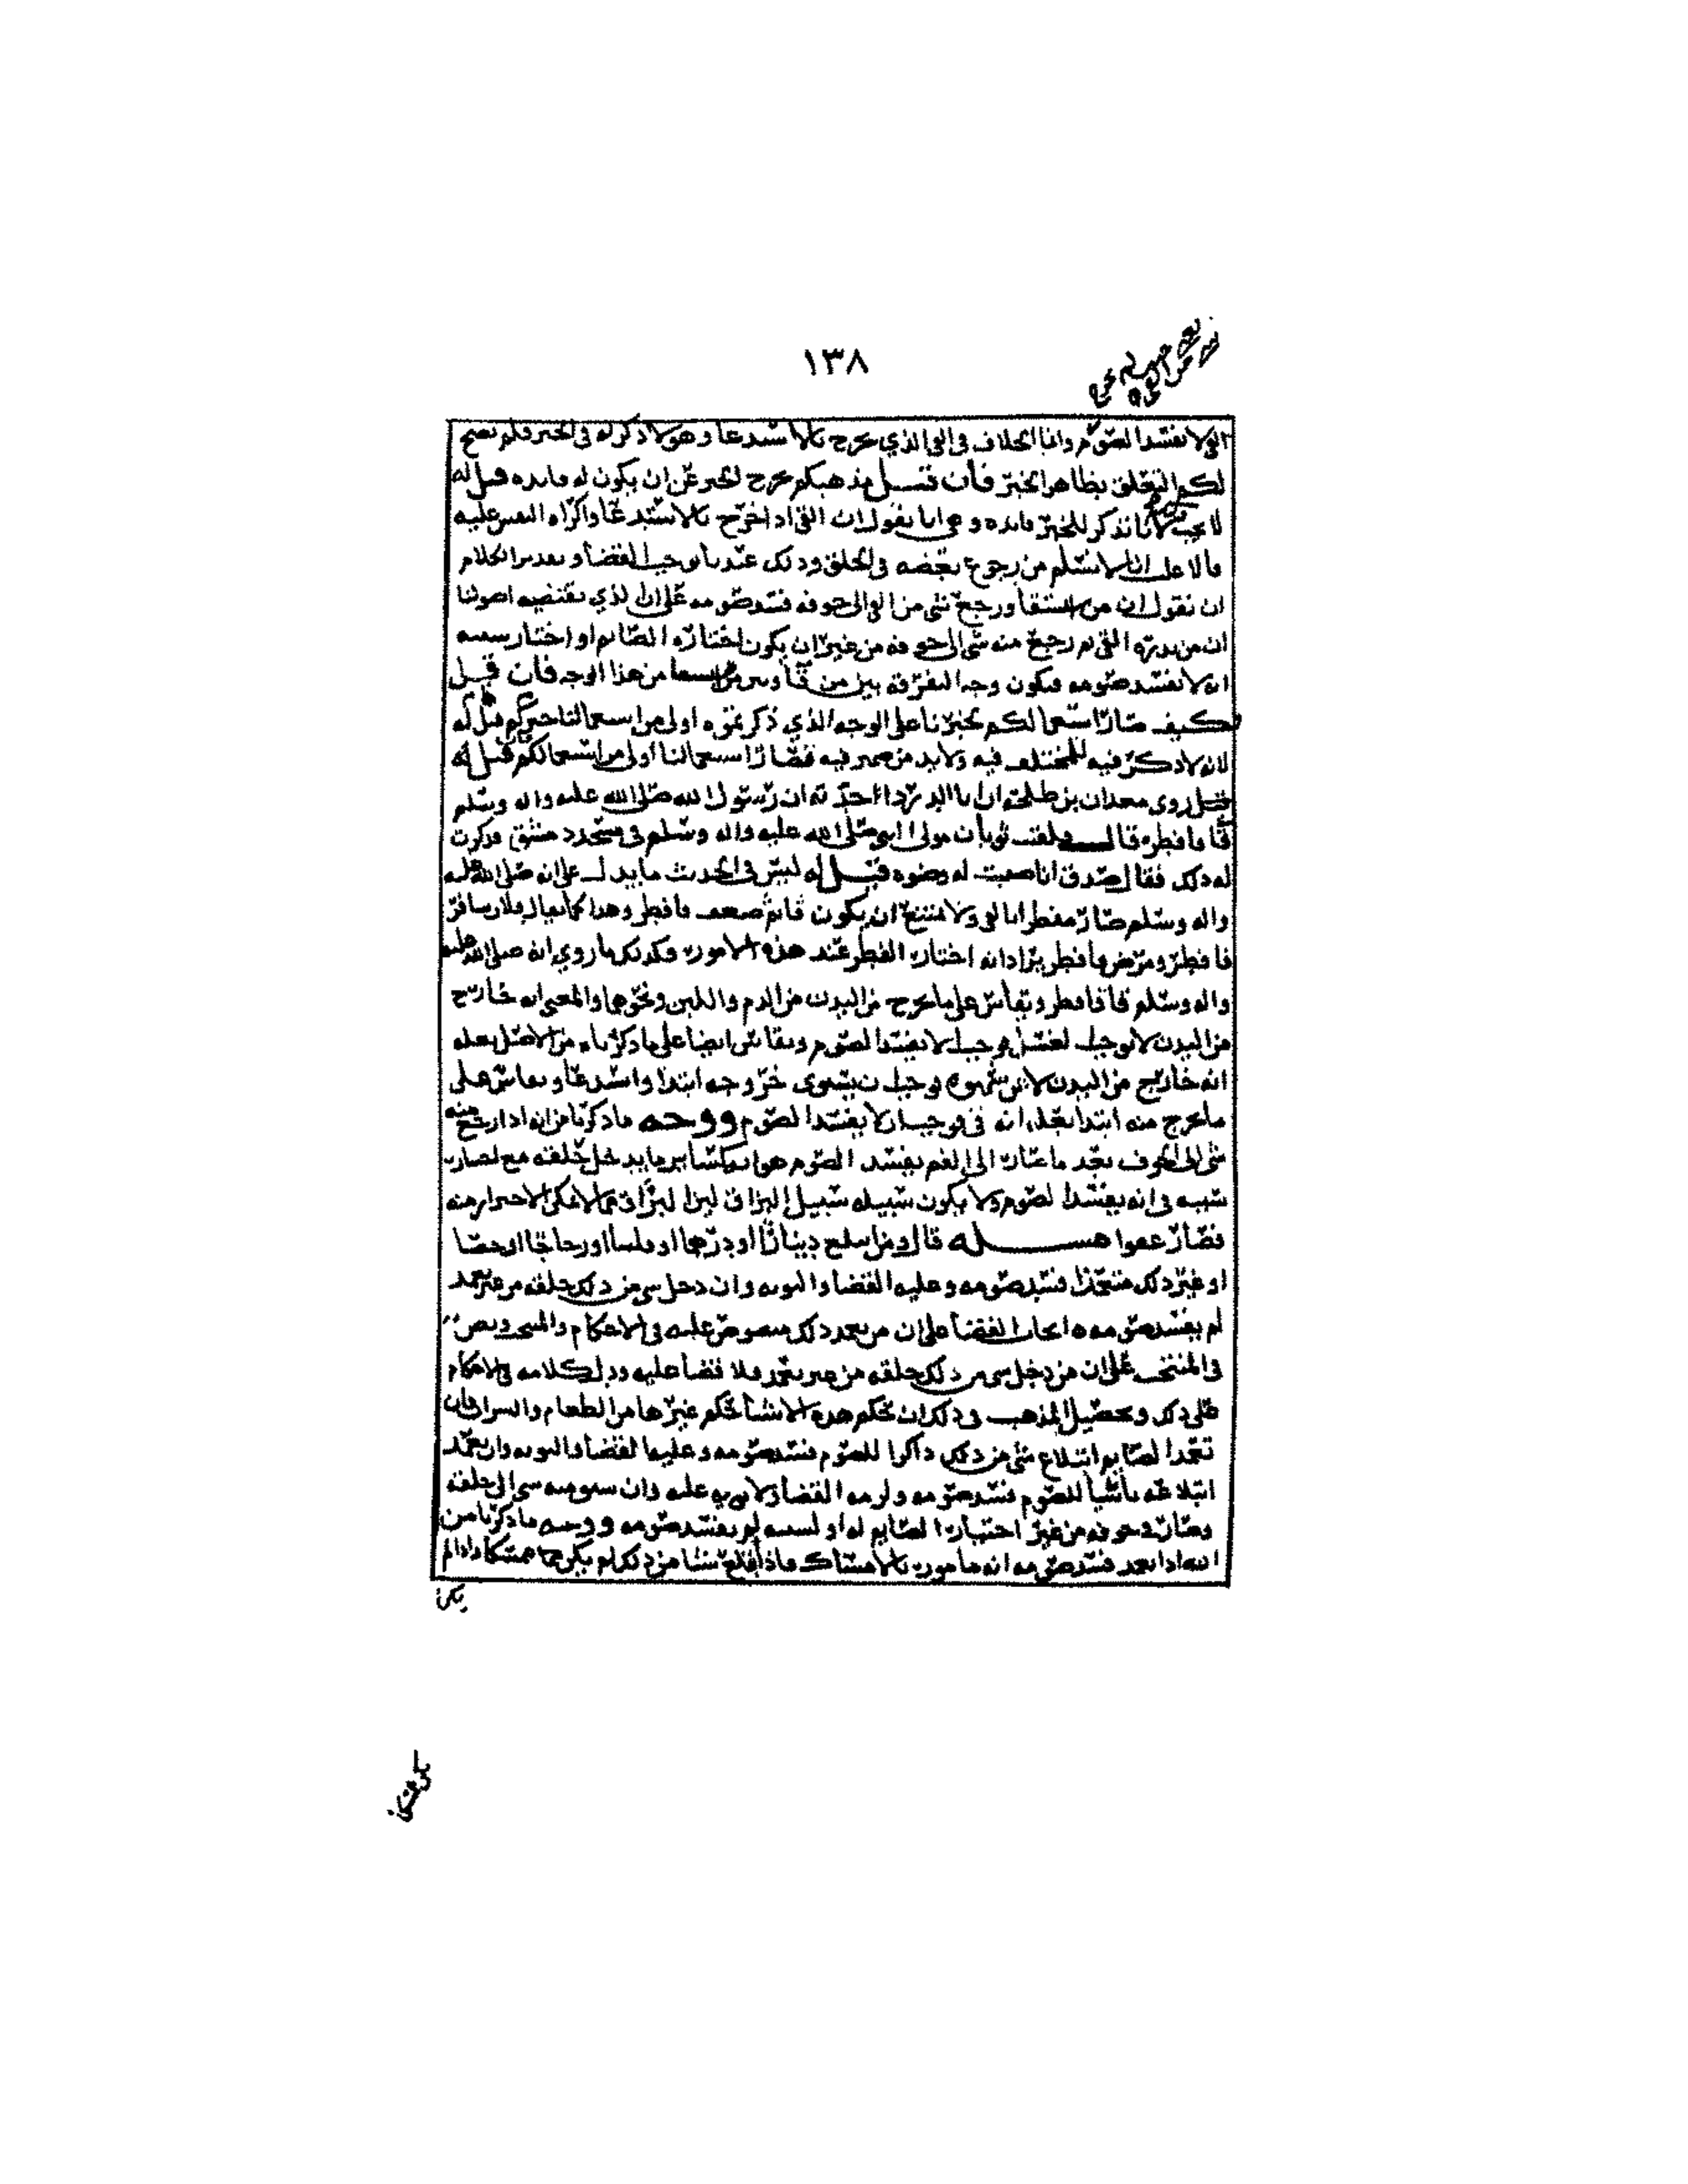 ١٣٨
القي لا يفسد الصوم وانما الخلاف في القي الذي يخرج بالاستدعا وهو لا ذكر له في الخبر فلم يصح
لكم التعلق بظاهر الخبر فان قيل مذهبكم يخرج الخبر عن ان يكون له فايده قيل له
لا يجب لانا نذكر للخبر فايده وهي انا نقول ان القي اذا خرج بالاستدعا واكراه النفس عليه
فالاغلب انه لا يسلم من رجوع بعضه في الحلق وذلك عندنا يوجب القضا وتقدير الكلام
ان نقول ان من استقا ورجع شي من القي الى جوفه فسد صومه على ان الذي يقتضيه اصولنا
ان من بدره القي ثم رجع منه شي الى جوفه من غير ان يكون اختاره الصايم او اختار سببه
انه لا يفسد صومه فيكون وجه التفرقة بين من قا وبين من استقا من هذا الوجه فان قيل
فكيف صار استعمالكم لخبرنا على الوجه الذي ذكرتموه اولى من استعمالنا خبركم قيل له
لانه لا ذكر فيه للمختلف فيه ولا بد من ضمير فيه فصار استعمالنا اولى من استعمالكم فان قيل
قيل روى معدان بن طلحة ان ابا الدرداء حدثه ان رسول الله صلى الله عليه واله وسلم
قا فافطر قال فلقيت ثوبان مولى النبي صلى الله عليه واله وسلم في مسجد دمشق فذكرت
له ذلك فقال صدق انا صببت له وضوه قيل له ليس في الحديث ما يدل على انه صلى الله عليه
واله وسلم صار مفطرا بالقي ولا يمتنع ان يكون قا ثم ضعف فافطر وهذا كما يقال فلان سافر
فافطر ومرض فافطر يراد انه اختار الفطر عند هذه الامور وكذلك ما روي انه صلى الله عليه
واله وسلم قا فافطر ويقاس على ما يخرج من البدن من الدم واللبن ونحوهما والمعنى انه خارج
من البدن لا يوجب الغسل فوجب ان لا يفسد الصوم ويقاس ايضا على ما ذكرناه من الاصل بعله
انه خارج من البدن لا عن شهوه فوجب ان يستوى خروجه ابتدا واستدعا ويقاس على
ما يخرج منه ابتدا بعلة انه قي فوجب ان لا يفسد الصوم ووجه ما ذكرنا من انه اذا رجع منه
شي الى الجوف بعد ما صار الى الفم يفسد الصوم هو انه كساير ما يدخل حلقه مع اختيار
سببه في انه يفسد الصوم ولا يكون سبيله سبيل البزاق لان البزاق مما لا يمكن الاحتراز منه
فصار عفوا مسله قال ومن ابتلع دينارا او درهما او فلسا او زجاجا او حصا
او غير ذلك متعمدا فسد صومه وعليه القضا والتوبه وان دخل شي من ذلك حلقه من غير تعمد
لم يفسد صومه ايجاب القضا على من تعمد ذلك منصوص عليه في الاحكام والمنتخب ونص
في المنتخب على ان من دخل شي من ذلك حلقه من غير تعمد فلا قضا عليه ودل كلامه في الاحكام
على ذلك وتحصيل المذهب في ذلك ان حكم هذه الاشيا حكم غيرها من الطعام والشراب فان
تعمد الصايم ابتلاع شي من ذلك ذاكرا للصوم فسد صومه وعليه القضا والتوبه وان تعمد
ابتلاعه ناسيا للصوم فسد صومه ولزمه القضا ولا توبه عليه وان سبق منه شي الى حلقه
وصار في جوفه من غير اختيار الصايم له او لسببه لم يفسد صومه ووجه ما ذكرنا من
انه اذا تعمد فسد صومه انه مامور بالامساك فاذا ابتلع شيئا من ذلك لم يكن ممسكا واذا لم
يكن